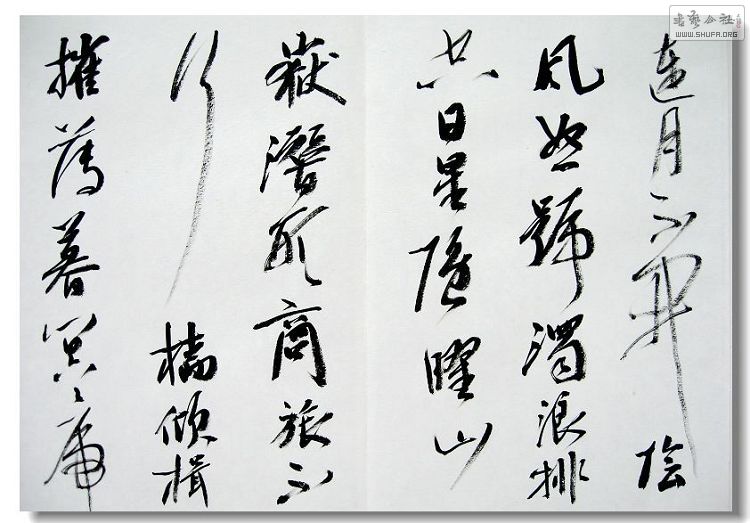 連月不開陰
風怒號濁浪排
空日星隱曜山
嶽潛形商旅不
行檣傾楫
摧薄暮冥冥虎
書藝公社
WWW.SHUFA.ORG